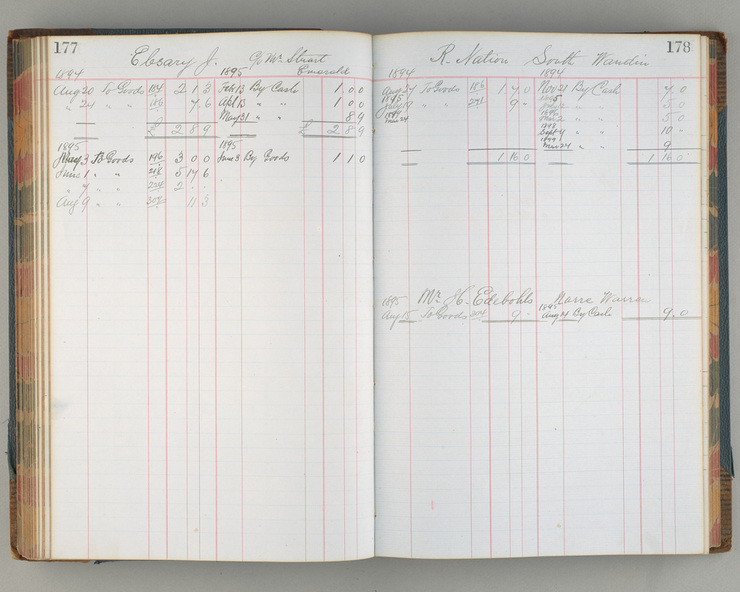 177
Ebsary J. C/o Mr Strart Emerald
1894 1895
Aug 20 To Goods 184 2 1 3 Feb 13 By Cash 1 0 0
" 24 " " 186 7 6 Apl 13 " " 1 0 0
May 31 " " 8 9
£ 2 8 9 £ 2 8 9
1895 1895
May 3 To Goods 196 3 0 0 June 3 By Goods 1 1 0
June 1 " " 218 5 17 6
" 7 " " 224 2 " "
Aug 9 " " 11 3
178
R. Nation South Wandin
1894 1894
Aug 27 To Goods 186 1 7 0 Nov 21 By Cash 7 0
1895 1895
July 19 241 9 " July 2 " " 5 0
1897 1896
Mar 24 Mar 2 " " 5 0
1898
Sept 9 " " 10 "
1899
Mar 24 " " 9
1 16 0 1 16 0
1895 Mr H. Edebohls Narre Warren
1895
Aug 15 To Goods 304 9 " Aug 14 By Cash 9 . 0